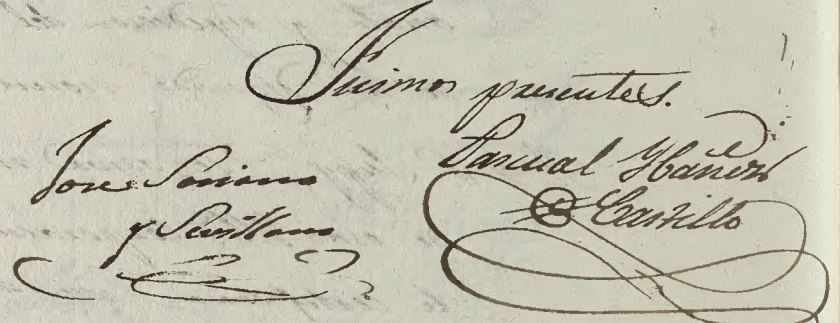 Fuimos presentes.
Jose Soriano
y Sevillano
Pascual Ybañez
Castillo